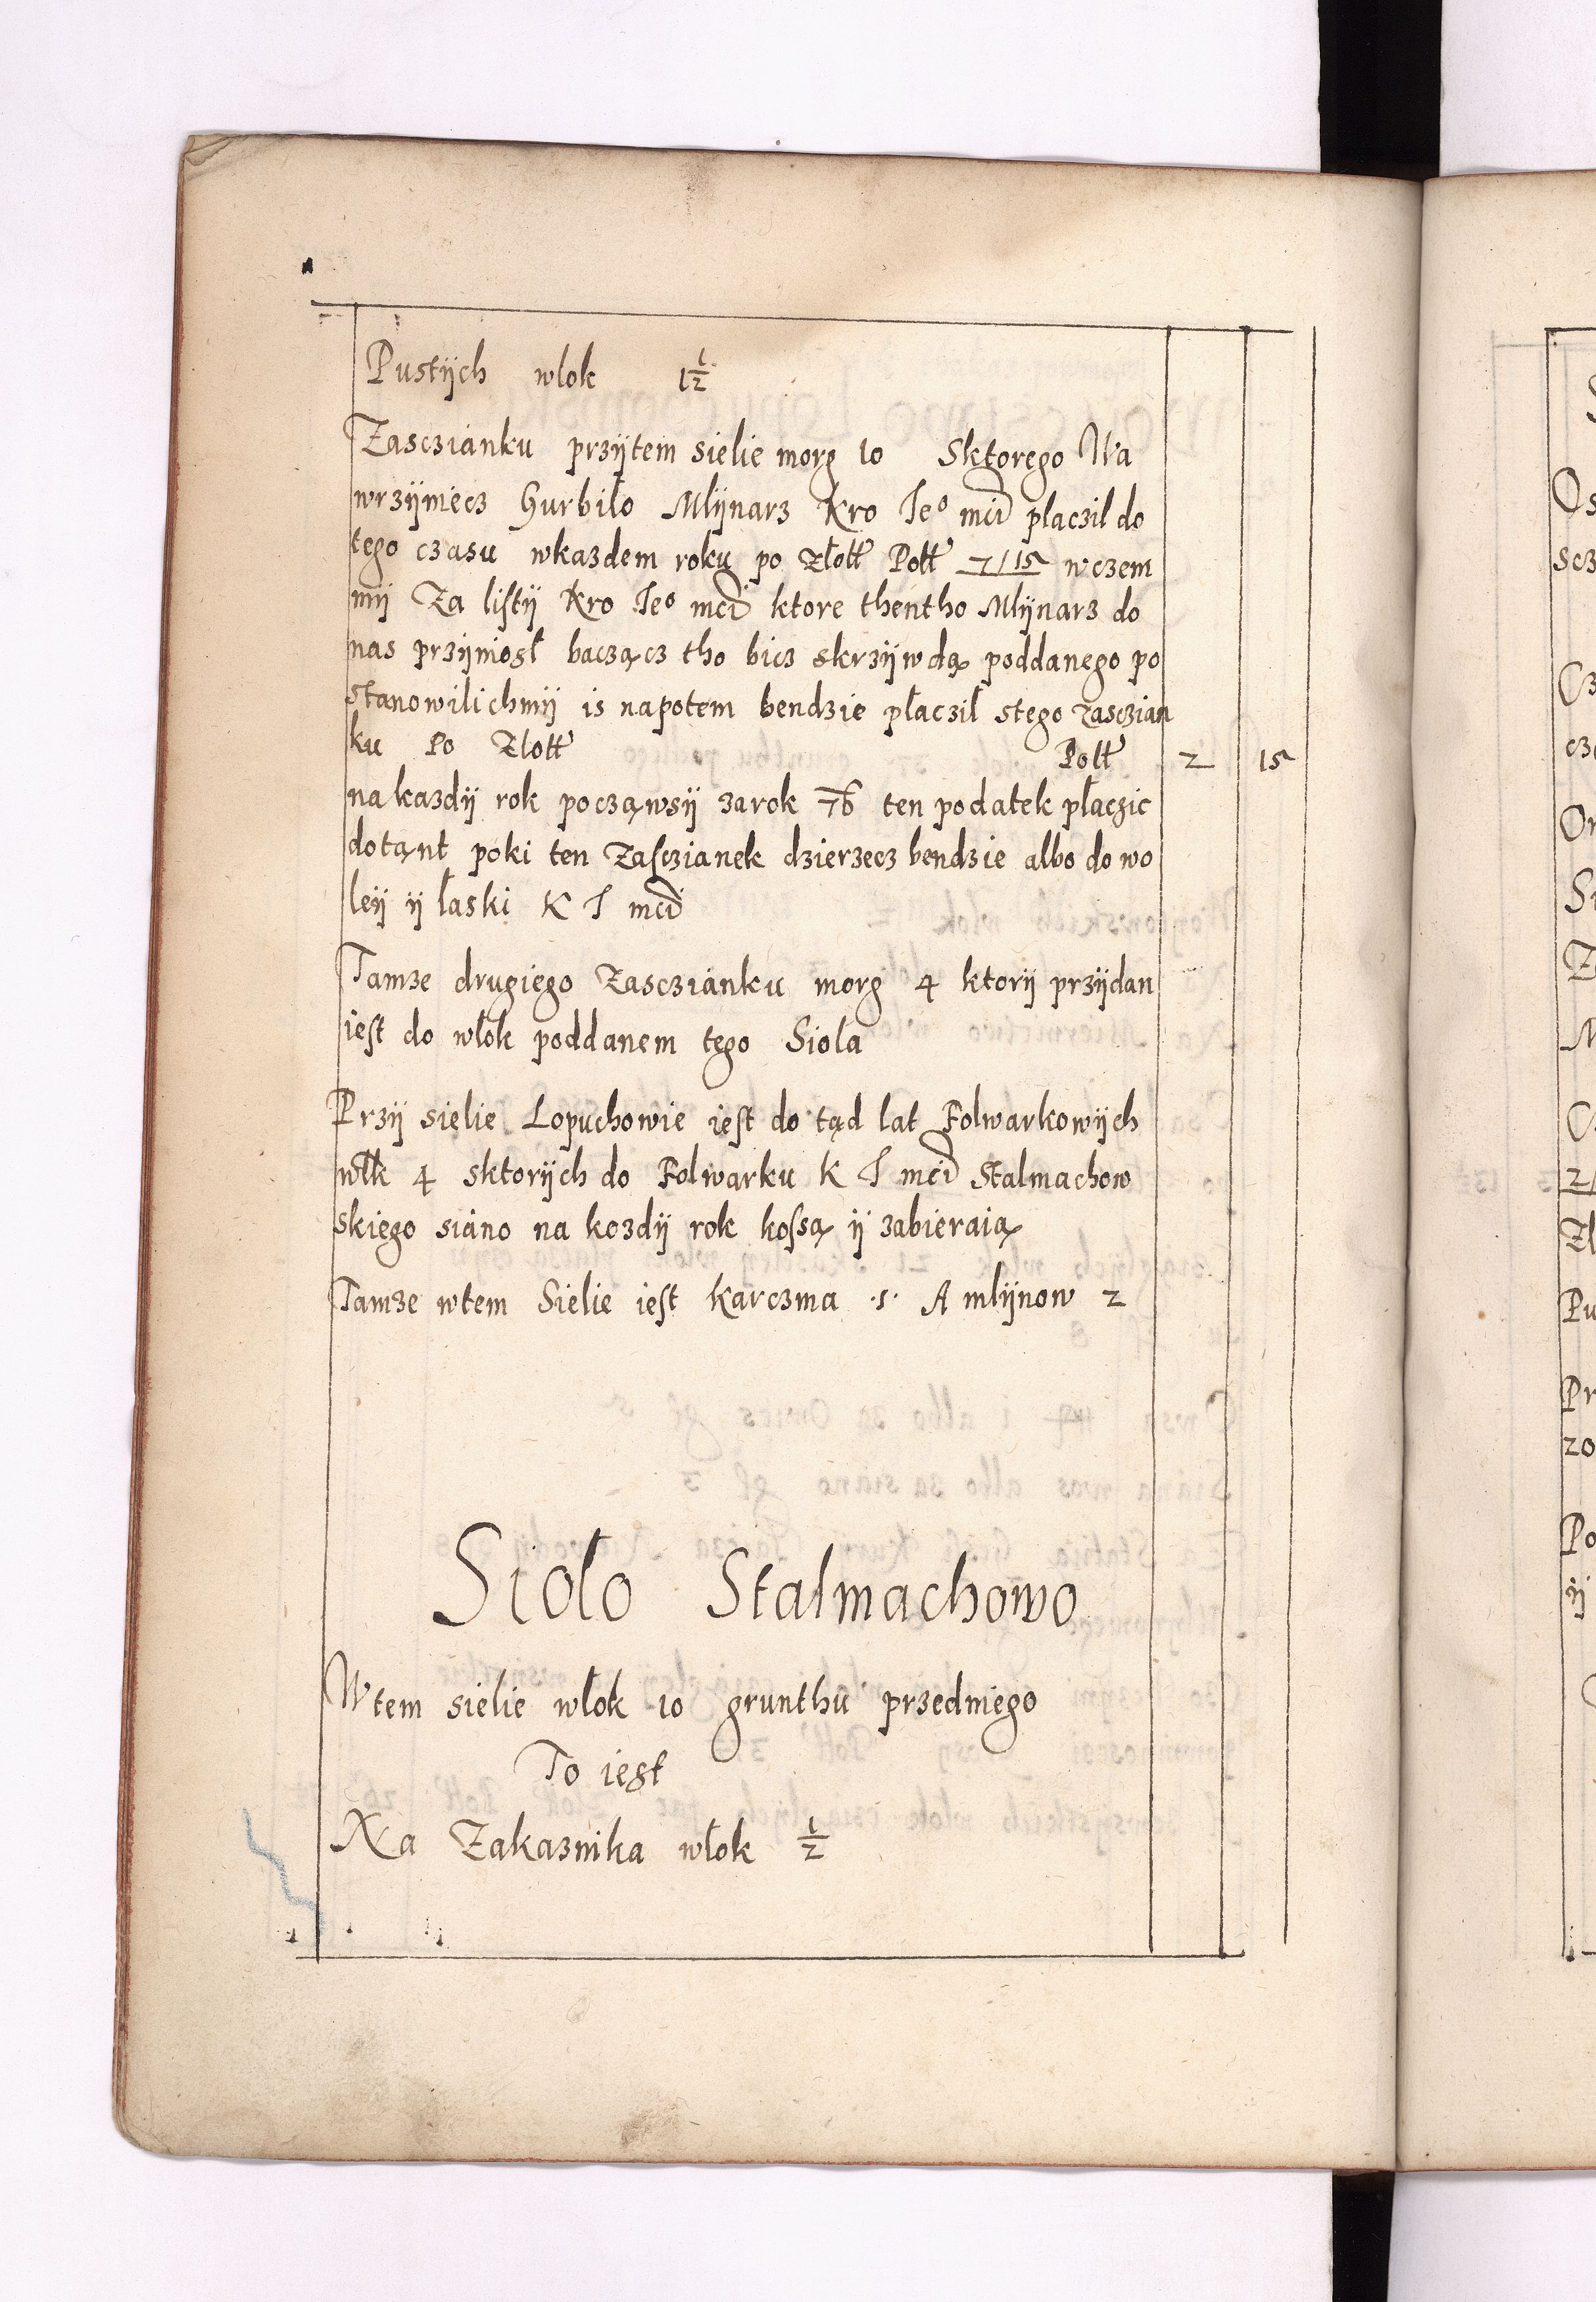 Pustÿch wlok 1½
Zascziánku przÿtem sielie morg 10 Sktorego Wa
wrzÿniecz Hurbiło Mlÿnarz Kro Jeº mći placzil do
tego czasu wkazdem roku po złott Poll 7/15 wczem
mÿ Za listÿ Kro Jeº mći ktore thentho Mlÿnarz do
nas przÿniosł baczącz tho bicz skrzÿwdą poddanego po
stanowilichmÿ is napotem bendzie płaczil stego zasczian
ku Po Złott Poll 2 15
na kazdÿ rok począwsÿ zarok 76 ten podatek płaczic
dotąnt poki ten Zasczianek dzierzecz bendzie albo do wo
leÿ ÿ łaski K J mći
Tamze drugiego Zascziánku morg 4 ktorÿ przÿdan
iest do wlok poddanem tego Siola
Przÿ sielie Lopuchowie iest do tąd lat Folwarkowÿch
włk 4 sktorÿch do Folwarku K J mći Stalmachow
skiego siáno na kozdÿ rok kossą ÿ zabieraią
Tamze wtem Sielie iest karczma .1. A mlÿnow 2
Sioło Stalmachowo
Wtem sielie włok 10 grunthu przedniego
To iest
Na Zakaznika włok ½